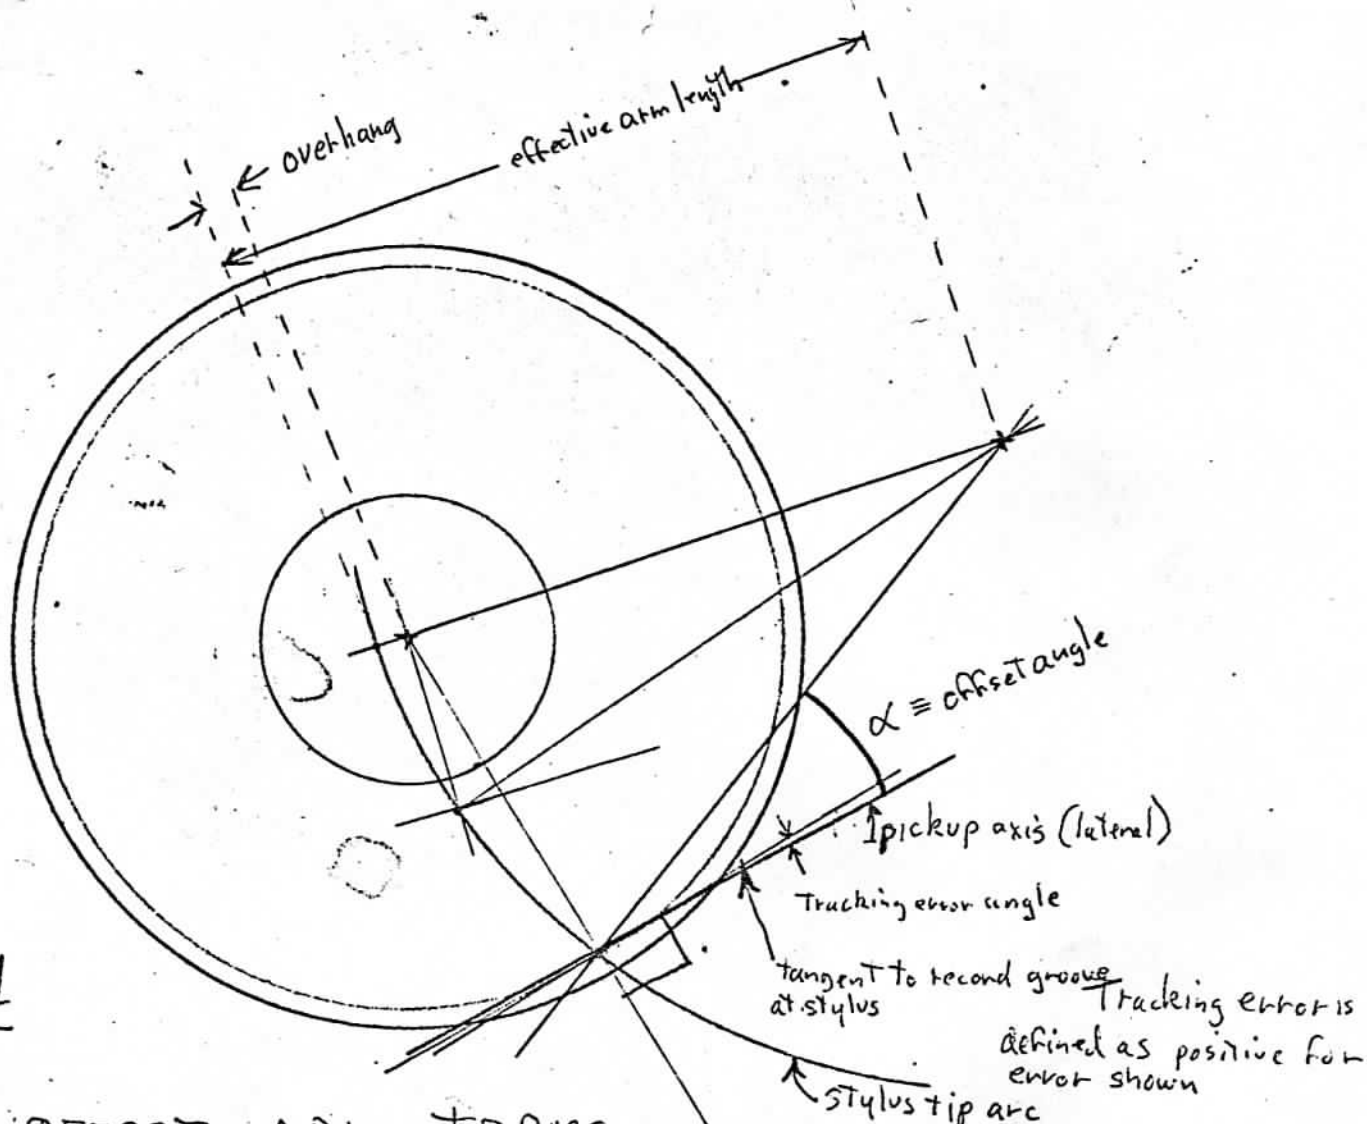 overhang
effective arm length
α ≡ offset angle
pickup axis (lateral)
Tracking error angle
tangent to record groove
at stylus
Tracking error is
defined as positive for
error shown
stylus tip arc
OFFSET ARM TERMS